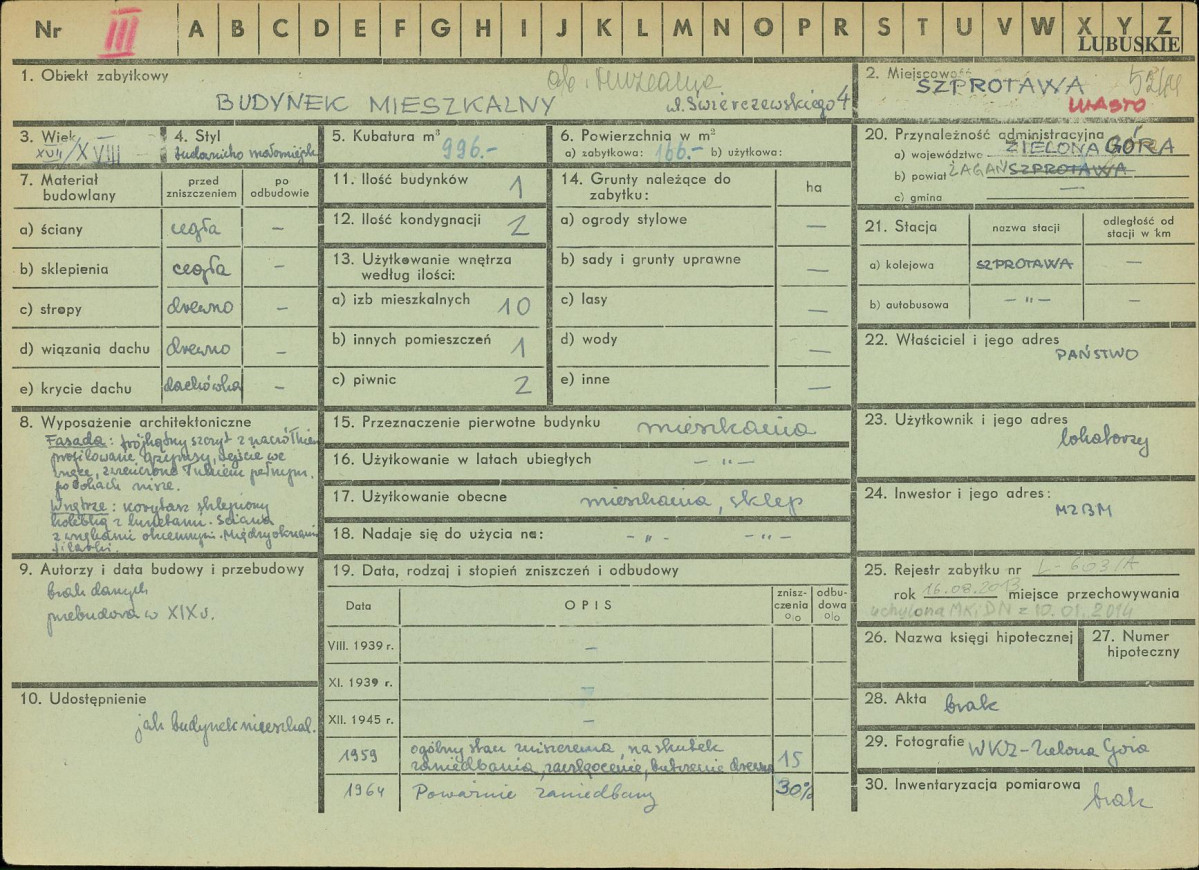 Nr III A B C D E F G H I J K L M N O P R S T U V W X Y Z
LUBUSKIE
1. Obiekt zabytkowy
ob. Muzealna
BUDYNEK MIESZKALNY
Świerczewskiego 4
2. Miejscowość
SZPROTAWA
MIASTO
3. Wiek
XVII/XVIII
4. Styl
budownictwo małomiejsk
5. Kubatura m³
996.-
6. Powierzchnia w m²
a) zabytkowa: 166.- b) użytkowa:
20. Przynależność administracyjna
a) województwo ZIELONA GÓRA
b) powiat ŻAGAŃ SZPROTAWA
c) gmina —
7. Materiał budowlany
przed zniszczeniem
po odbudowie
a) ściany cegła –
b) sklepienia cegła –
c) stropy drewno –
d) wiązania dachu drewno –
e) krycie dachu dachówka –
11. Ilość budynków 1
12. Ilość kondygnacji 2
13. Użytkowanie wnętrza
według ilości:
a) izb mieszkalnych 10
b) innych pomieszczeń 1
c) piwnic 2
14. Grunty należące do
zabytku:
ha
a) ogrody stylowe —
b) sady i grunty uprawne —
c) lasy —
d) wody —
e) inne —
21. Stacja
nazwa stacji
odległość od
stacji w km
a) kolejowa SZPROTAWA —
b) autobusowa – " – —
22. Właściciel i jego adres
PAŃSTWO
8. Wyposażenie architektoniczne
Fasada: trójkątny szczyt z
profilowane gzymsy, wejście we
wnęce, zwieńczone łukiem pełnym.
po bokach nisze.
Wnętrze: korytarz sklepiony
kolebką z lunetami. Ściana
z wnękami okiennymi. Między oknami
filarki.
15. Przeznaczenie pierwotne budynku mieszkania
16. Użytkowanie w latach ubiegłych – " –
17. Użytkowanie obecne mieszkania, sklep
18. Nadaje się do użycia na: – " – – " –
23. Użytkownik i jego adres
lokatorzy
24. Inwestor i jego adres:
MZBM
9. Autorzy i data budowy i przebudowy
brak danych
przebudowa w XIX w.
19. Data, rodzaj i stopień zniszczeń i odbudowy
Data
OPIS
znisz-
czenia
%
odbu-
dowa
%
VIII. 1939 r. –
XI. 1939 r. –
XII. 1945 r. –
1959 ogólny stan zniszczenia, na skutek
zaniedbania, zawilgocenie, butwienie drewna 15
1964 Poważnie zaniedbany 30%
25. Rejestr zabytku nr L-603/A
rok 16.08.2013 miejsce przechowywania
uchylona MKiDN z 10.01.2014
26. Nazwa księgi hipotecznej
27. Numer
hipoteczny
10. Udostępnienie
jak budynek mieszkal.
28. Akta brak
29. Fotografie WKZ-Zielona Góra
30. Inwentaryzacja pomiarowa
brak